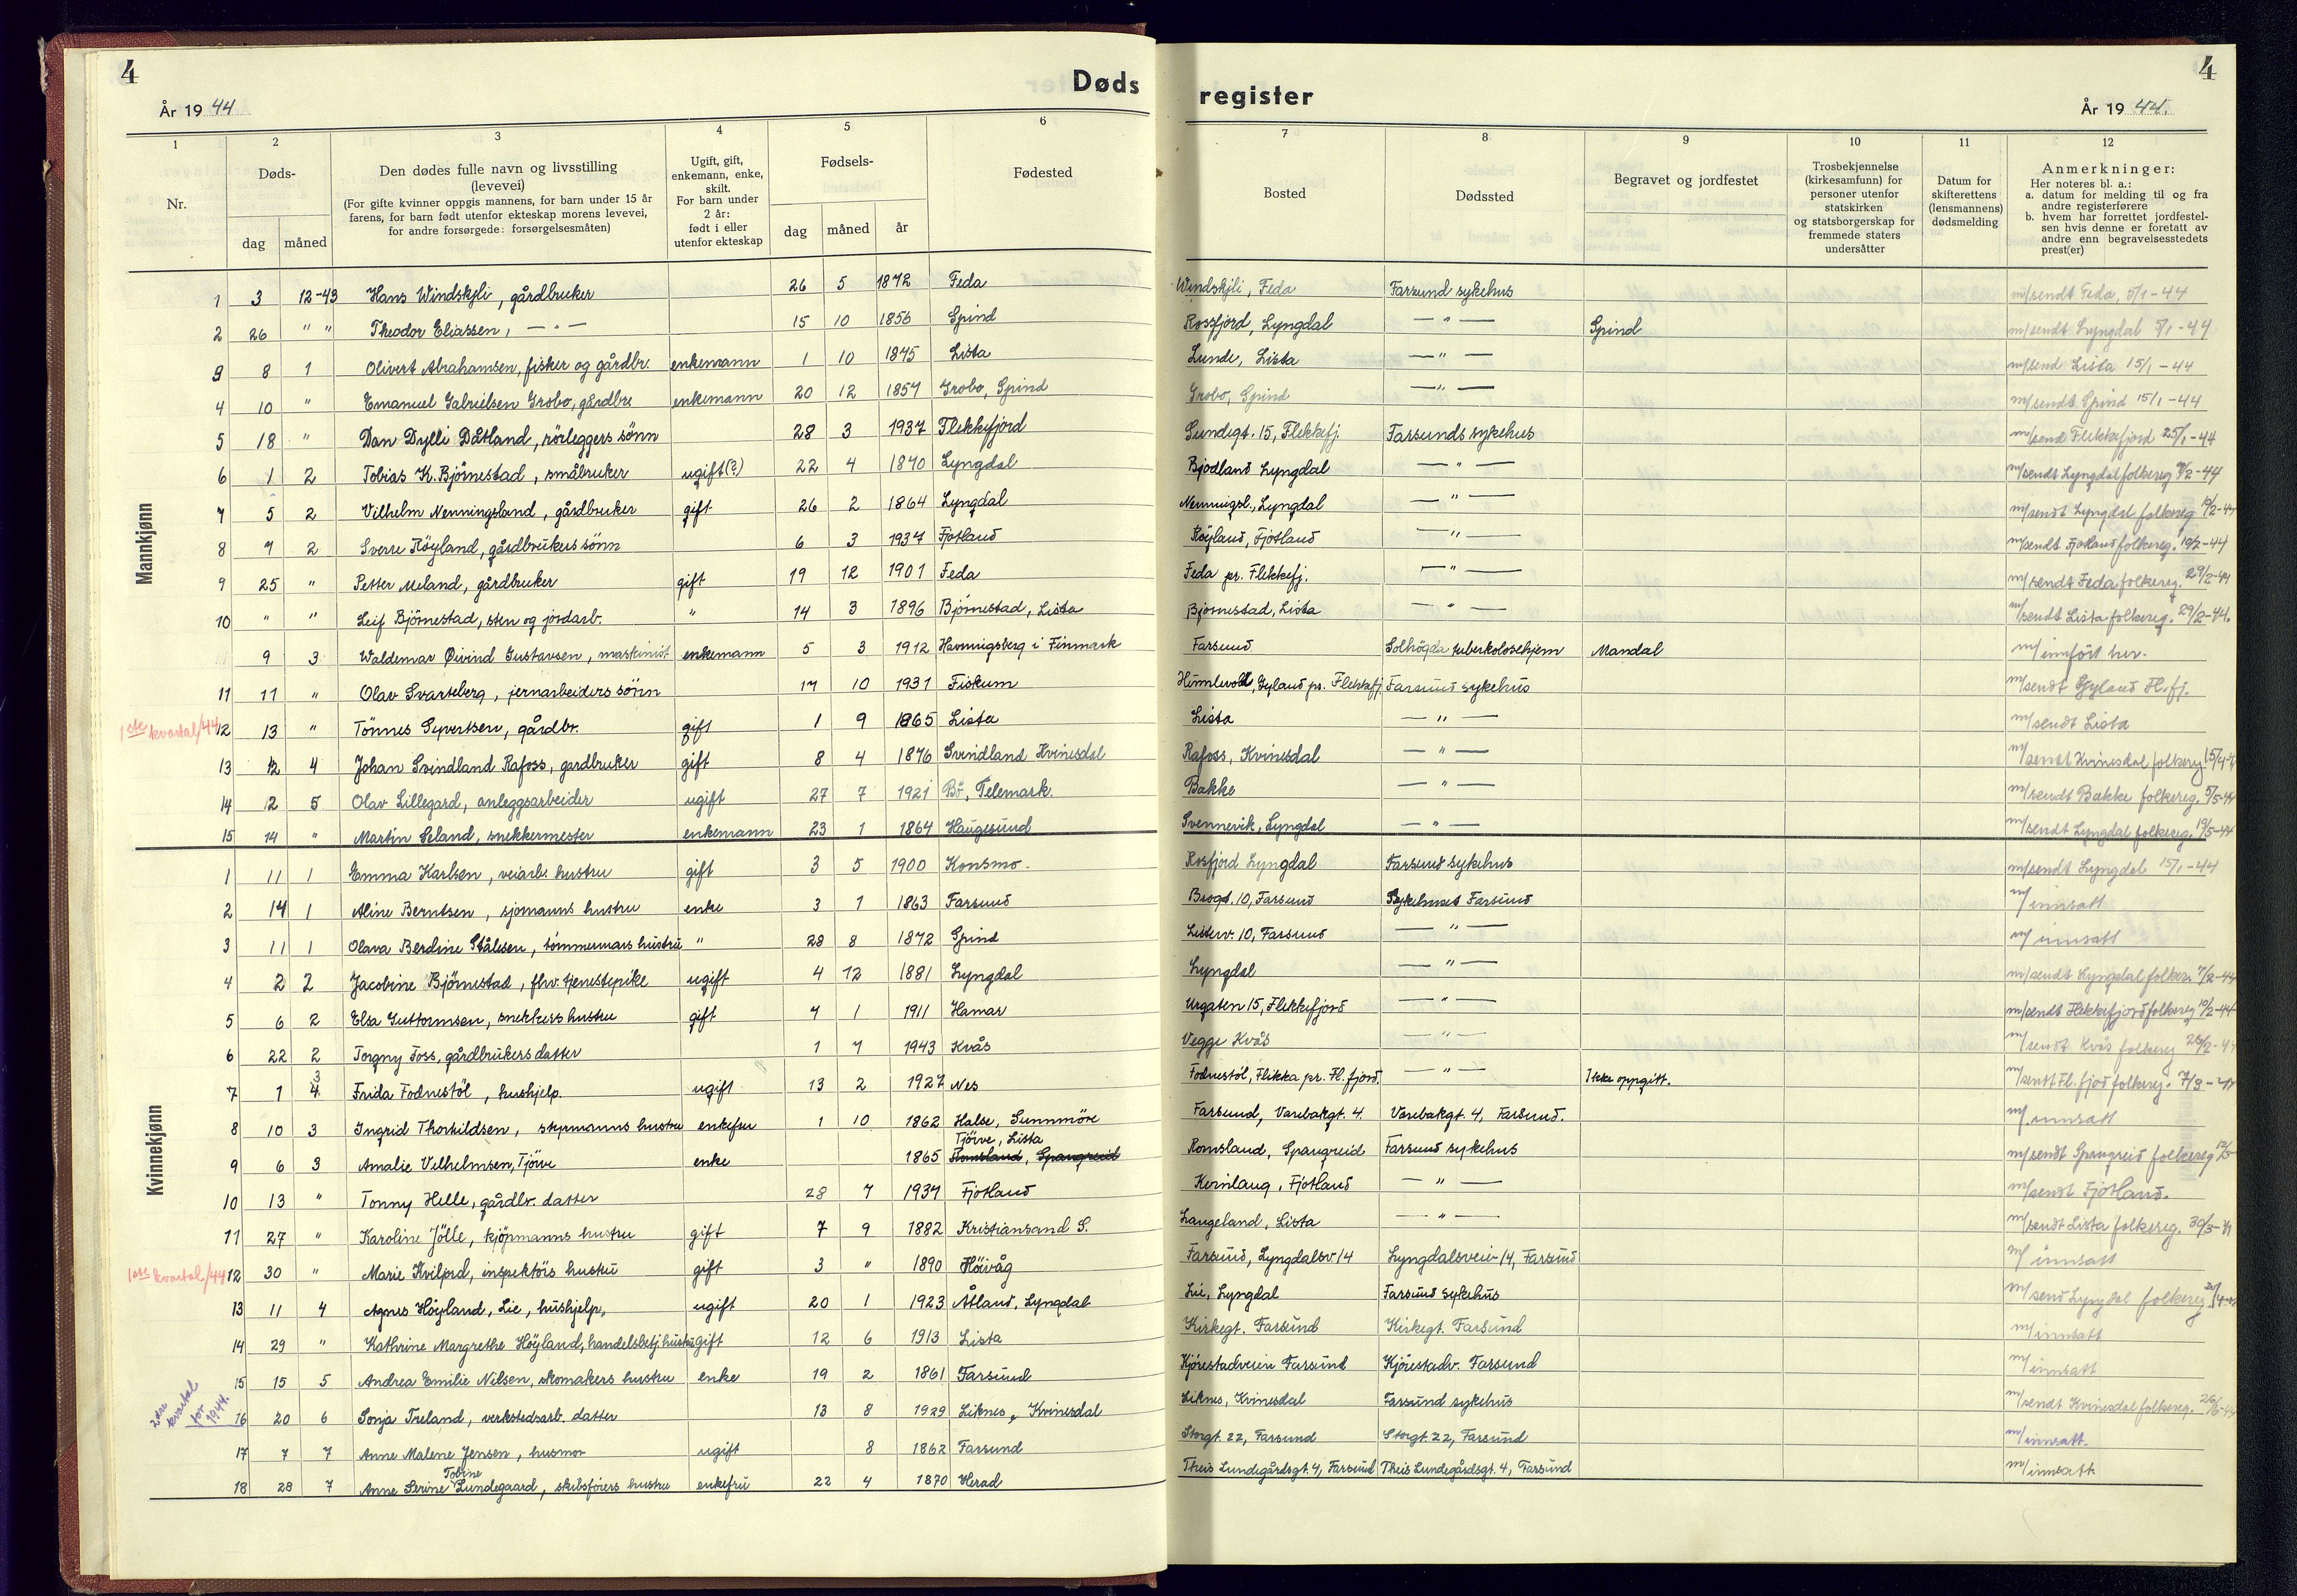 4
År 1944
Døds
1 2 3 4 5 6
Nr.
Døds-
dag måned
Den dødes fulle navn og livsstilling
(levevei)
(For gifte kvinner oppgis mannens, for barn under 15 år
farens, for barn født utenfor ekteskap morens levevei,
for andre forsørgede: forsørgelsesmåten)
Ugift, gift,
enkemann, enke,
skilt.
For barn under
2 år:
født i eller
utenfor ekteskap
Fødsels-
dag måned år
Fødested
Mannkjønn
1 3 12-43 Hans Windskjli, gårdbruker 26 5 1872 Feda
2 26 " " Theodor Eliassen, — " — 15 10 1856 Spind
3 8 1 Olivert Abrahamsen, fisker og gårdbr. enkemann 1 10 1875 Lista
4 10 " Emanuel Gabrielsen Grobo, gårdbr. enkemann 20 12 1857 Grobo, Spind
5 18 " Dan Dylli Dåtland, rörleggers sönn 28 3 1937 Flekkefjord
6 1 2 Tobias K. Björnestad, småbruker ugift(?) 22 4 1870 Lyngdal
7 5 2 Vilhelm Nenningsland, gårdbruker gift 26 2 1864 Lyngdal
8 7 2 Sverre Röyland, gårdbrukers sönn 6 3 1937 Fjotland
9 25 " Petter Meland, gårdbruker gift 19 12 1901 Feda
10 " " Leif Björnestad, sten og jordarb. " 14 3 1896 Björnestad, Lista
9 3 Waldemar Øivind Gustavsen, maskinist enkemann 5 3 1912 Havningsberg i Finmark
11 11 " Olav Svarteberg, jernarbeiders sönn 17 10 1931 Fiskum
1ste kvartal/44
12 13 " Tönnes Syvertsen, gårdbr. gift 1 9 1865 Lista
13 12 4 Johan Svindland Rafoss, gardbruker gift 8 4 1876 Svindland Kvinesdal
14 12 5 Olav Lillegard, anleggsarbeider ugift 27 7 1921 Bö, Telemark.
15 14 " Martin Seland, snekkermester enkemann 23 1 1864 Haugesund
Kvinnekjønn
1 11 1 Emma Karlsen, veiarb. hustru gift 3 5 1900 Konsmo.
2 14 1 Aline Berntsen, sjömanns hustru enke 3 1 1863 Farsund
3 11 1 Olava Berdine Stålesen, tömmermans hustru " 28 8 1872 Spind
4 2 2 Jacobine Björnestad, fhv. tjenestepike ugift 4 12 1881 Lyngdal
5 6 2 Elsa Guttormsen, snekkers hustru gift 7 1 1911 Hamar
6 22 2 Torgny Foss, gårdbrukers datter 1 7 1943 Kvås
7 1 4 3 Frida Fodnestöl, hushjelp. ugift 13 2 1927 Nes
8 10 3 Ingrid Thorkildsen, styrmanns hustru enkefru 1 10 1862 Halse, Sunnmöre
Tjörve, Lista
9 6 3 Amalie Vilhelmsen, Tjörve enke 1865 Romsland, Spangreid
10 13 " Tonny Helle, gårdbr. datter 28 7 1937 Fjotland
11 27 " Karoline Jölle, kjöpmanns hustru gift 7 9 1882 Kristiansand S.
1ste kvartal/44
12 30 " Marie Kviljord, inspektörs hustru gift 3 " 1890 Höivåg
13 11 4 Agnes Höyland, Lie, hushjelp, ugift 20 1 1923 Åland, Lyngdal
14 29 " Kathrine Margrethe Höyland, handelsbetj. hustru gift 12 6 1913 Lista
15 15 5 Andrea Emilie Nilsen, skomakers hustru enke 19 2 1861 Farsund
2dre kvartal for 1944.
16 20 6 Sonja Treland, verkstedsarb. datter 13 8 1929 Liknes, Kvinesdal
17 7 7 Anne Malene Jensen, husmor ugift 8 1862 Farsund
Tobine
18 28 7 Anne Serine Lundegaard, skibsförers hustru enkefru 22 4 1870 Herad
4
register
År 1944.
7 8 9 10 11 12
Bosted
Dødssted
Begravet og jordfestet
Trosbekjennelse
(kirkesamfunn) for
personer utenfor
statskirken
og statsborgerskap for
fremmede staters
undersåtter
Datum for
skifterettens
(lensmannens)
dødsmelding
Anmerkninger:
Her noteres bl. a.:
a. datum for melding til og fra
andre registerførere
b. hvem har forrettet jordfestel-
sen hvis denne er foretatt av
andre enn begravelsesstedets
prest(er)
Windskjli, Feda Farsund sykehus m/sendt Feda, 5/1-44
Rosfjord, Lyngdal — " — Spind m/sendt Lyngdal 5/1-44
Lunde, Lista — " — m/send Lista 15/1-44
Grobo, Spind — " — m/sendt Spind 15/1-44
Sundegt. 15, Flekkefj. Farsunds sykehus m/send Flekkefjord 25/1-44
Bjödland Lyngdal — " — m/sendt Lyngdal folkereg /2-44
Nenningsl., Lyngdal — " — m/sendt Lyngdal folkereg 10/2-44
Röyland, Fjotland — " — m/sendt Fjotland folkereg. 19/2-44
Feda pr. Flekkefj. — " — m/sendt Feda folkereg. 29/2-44
Björnestad, Lista — " — m/sendt Lista folkereg. 29/2-44.
Farsund Solhögda tuberkolosehjem Mandal m/innfört her.
Himlevoll, Gyland pr. Flekkefj. Farsund sykehus m/sendt Gyland Fl.fj.
Lista — " — m/sendt Lista
Rafoss, Kvinesdal — " — m/sendt Kvinesdal folkereg 15/4-4
Bakke — " — m/sendt Bakke folkereg. 5/5-44
Svennevik, Lyngdal — " — m/sendt Lyngdal folkereg. 19/5-44
Rosfjord Lyngdal Farsund sykehus m/sendt Lyngdal 15/1-44
Brogt. 10, Farsund Sykehuset Farsund m/innsatt
Listerv. 10, Farsund — " — m/innsatt
Lyngdal — " — m/sendt Lyngdal folker. 7/2-44
Urgaten 15, Flekkefjord — " — m/sendt Flekkefjord folkereg 10/2-44
Vegge Kvås — " — m/sendt Kvås folkereg 26/2-44
Fodnestöl, Flikka pr. Fl. fjord. — " — Ikke oppgitt. m/sendt Fl. fjord folkereg. 7/3-44
Farsund, Varebakgt. 4. Varebakgt. 4, Farsund. m/innsatt
Romsland, Spangreid Farsund sykehus m/sendt Spangreid folkereg
Kvinlaug, Fjotland — " — m/sendt Fjotland.
Langeland, Lista — " — m/sendt Lista folkereg. 30/3-44
Farsund, Lyngdalsv. 14 Lyngdalsvei 14, Farsund m/innsatt
Lie, Lyngdal Farsund sykehus m/send Lyngdal folkereg
Kirkegt. Farsund Kirkegt. Farsund m/innsatt
Kjörestadveien Farsund Kjörestadv. Farsund m/innsatt
Liknes, Kvinesdal Farsund sykehus m/sendt Kvinesdal folkereg. 26/6-44
Storgt. 22, Farsund Storgt. 22, Farsund m/innsatt.
Theis Lundegårdsgt. 4, Farsund Theis Lundegårdsgt. 4, Farsund m/innsatt